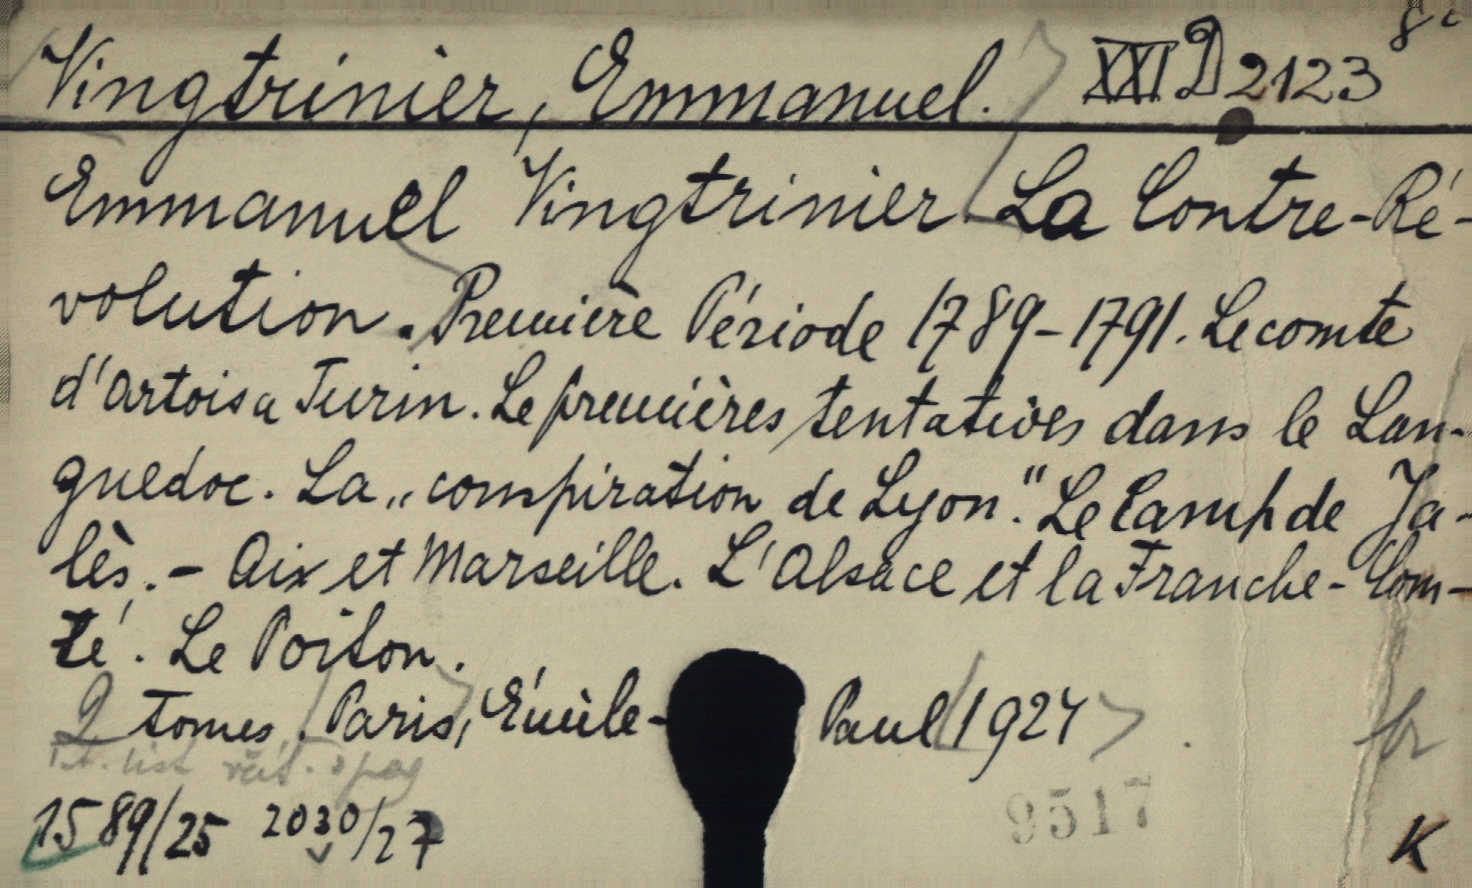 Vingtrinier, Emmanuel. XXI D 2123 8°
Emmanuel Vingtrinier La Contre-Ré-
volution. Première Période 1789-1791. Le comte
d'Artois a Turin. Le premières tentatives dans le Lan-
guedoc. La „conspiration de Lyon". Le Camp de Ja-
lès. - Aix et Marseille. L'Alsace et la Franche-Com-
té. Le Poiton.
2 tomes. Paris, Émile- Paul 1924
Tit. list
1589/25 2030/27
9517
K